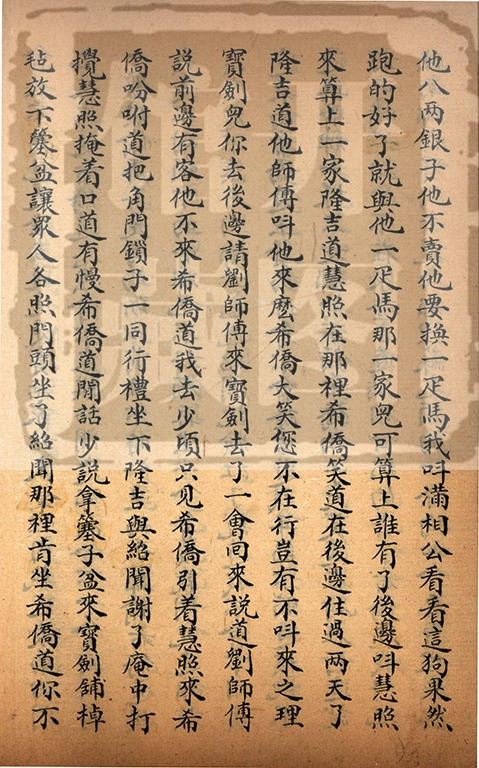 他八两銀子他不賣他要换一疋馬我呌滿相公看看這狗果然
跑的好了就與他一疋馬那一家兒可算上誰有了後邊呌慧照
來算上一家隆吉道慧照在那裡希僑笑道在後邊住過两天了
隆吉道他師傅呌他來麽希僑大笑您不在行豈有不呌來之理
寳劍兒你去後邊請劉師傅來寳劍去了一會回來説道劉師傅
説前邊有客他不來希僑道我去少頃只见希僑引着慧照來希
僑吩咐道把角門鎖子一同行禮坐下隆吉與紹聞謝了庵中打
攪慧照掩着口道有慢希僑道閒話少説拿簺子盆來寳劍舖棹
毡放下簺盆讓眾人各照門頭坐了紹聞那裡肯坐希僑道你不